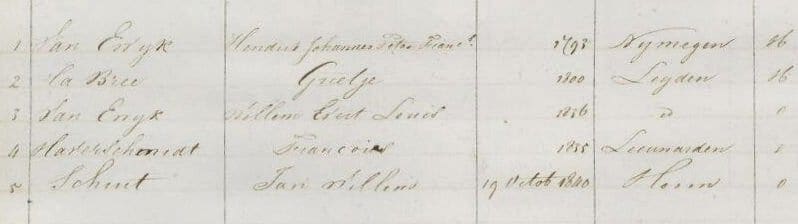 1 Van Eryk Hendrik Johannes Petrus Franc.s 1793 Nymegen H
2 La Bree Grietje 1800 Leyden H
3 Van Eryk Willem Evert Louis 1836 d 0
4 Haverschmidt Francois 1835 Leeuwarden 0
5 Schut Jan Willem 19 Octob 1840 Hoorn 0